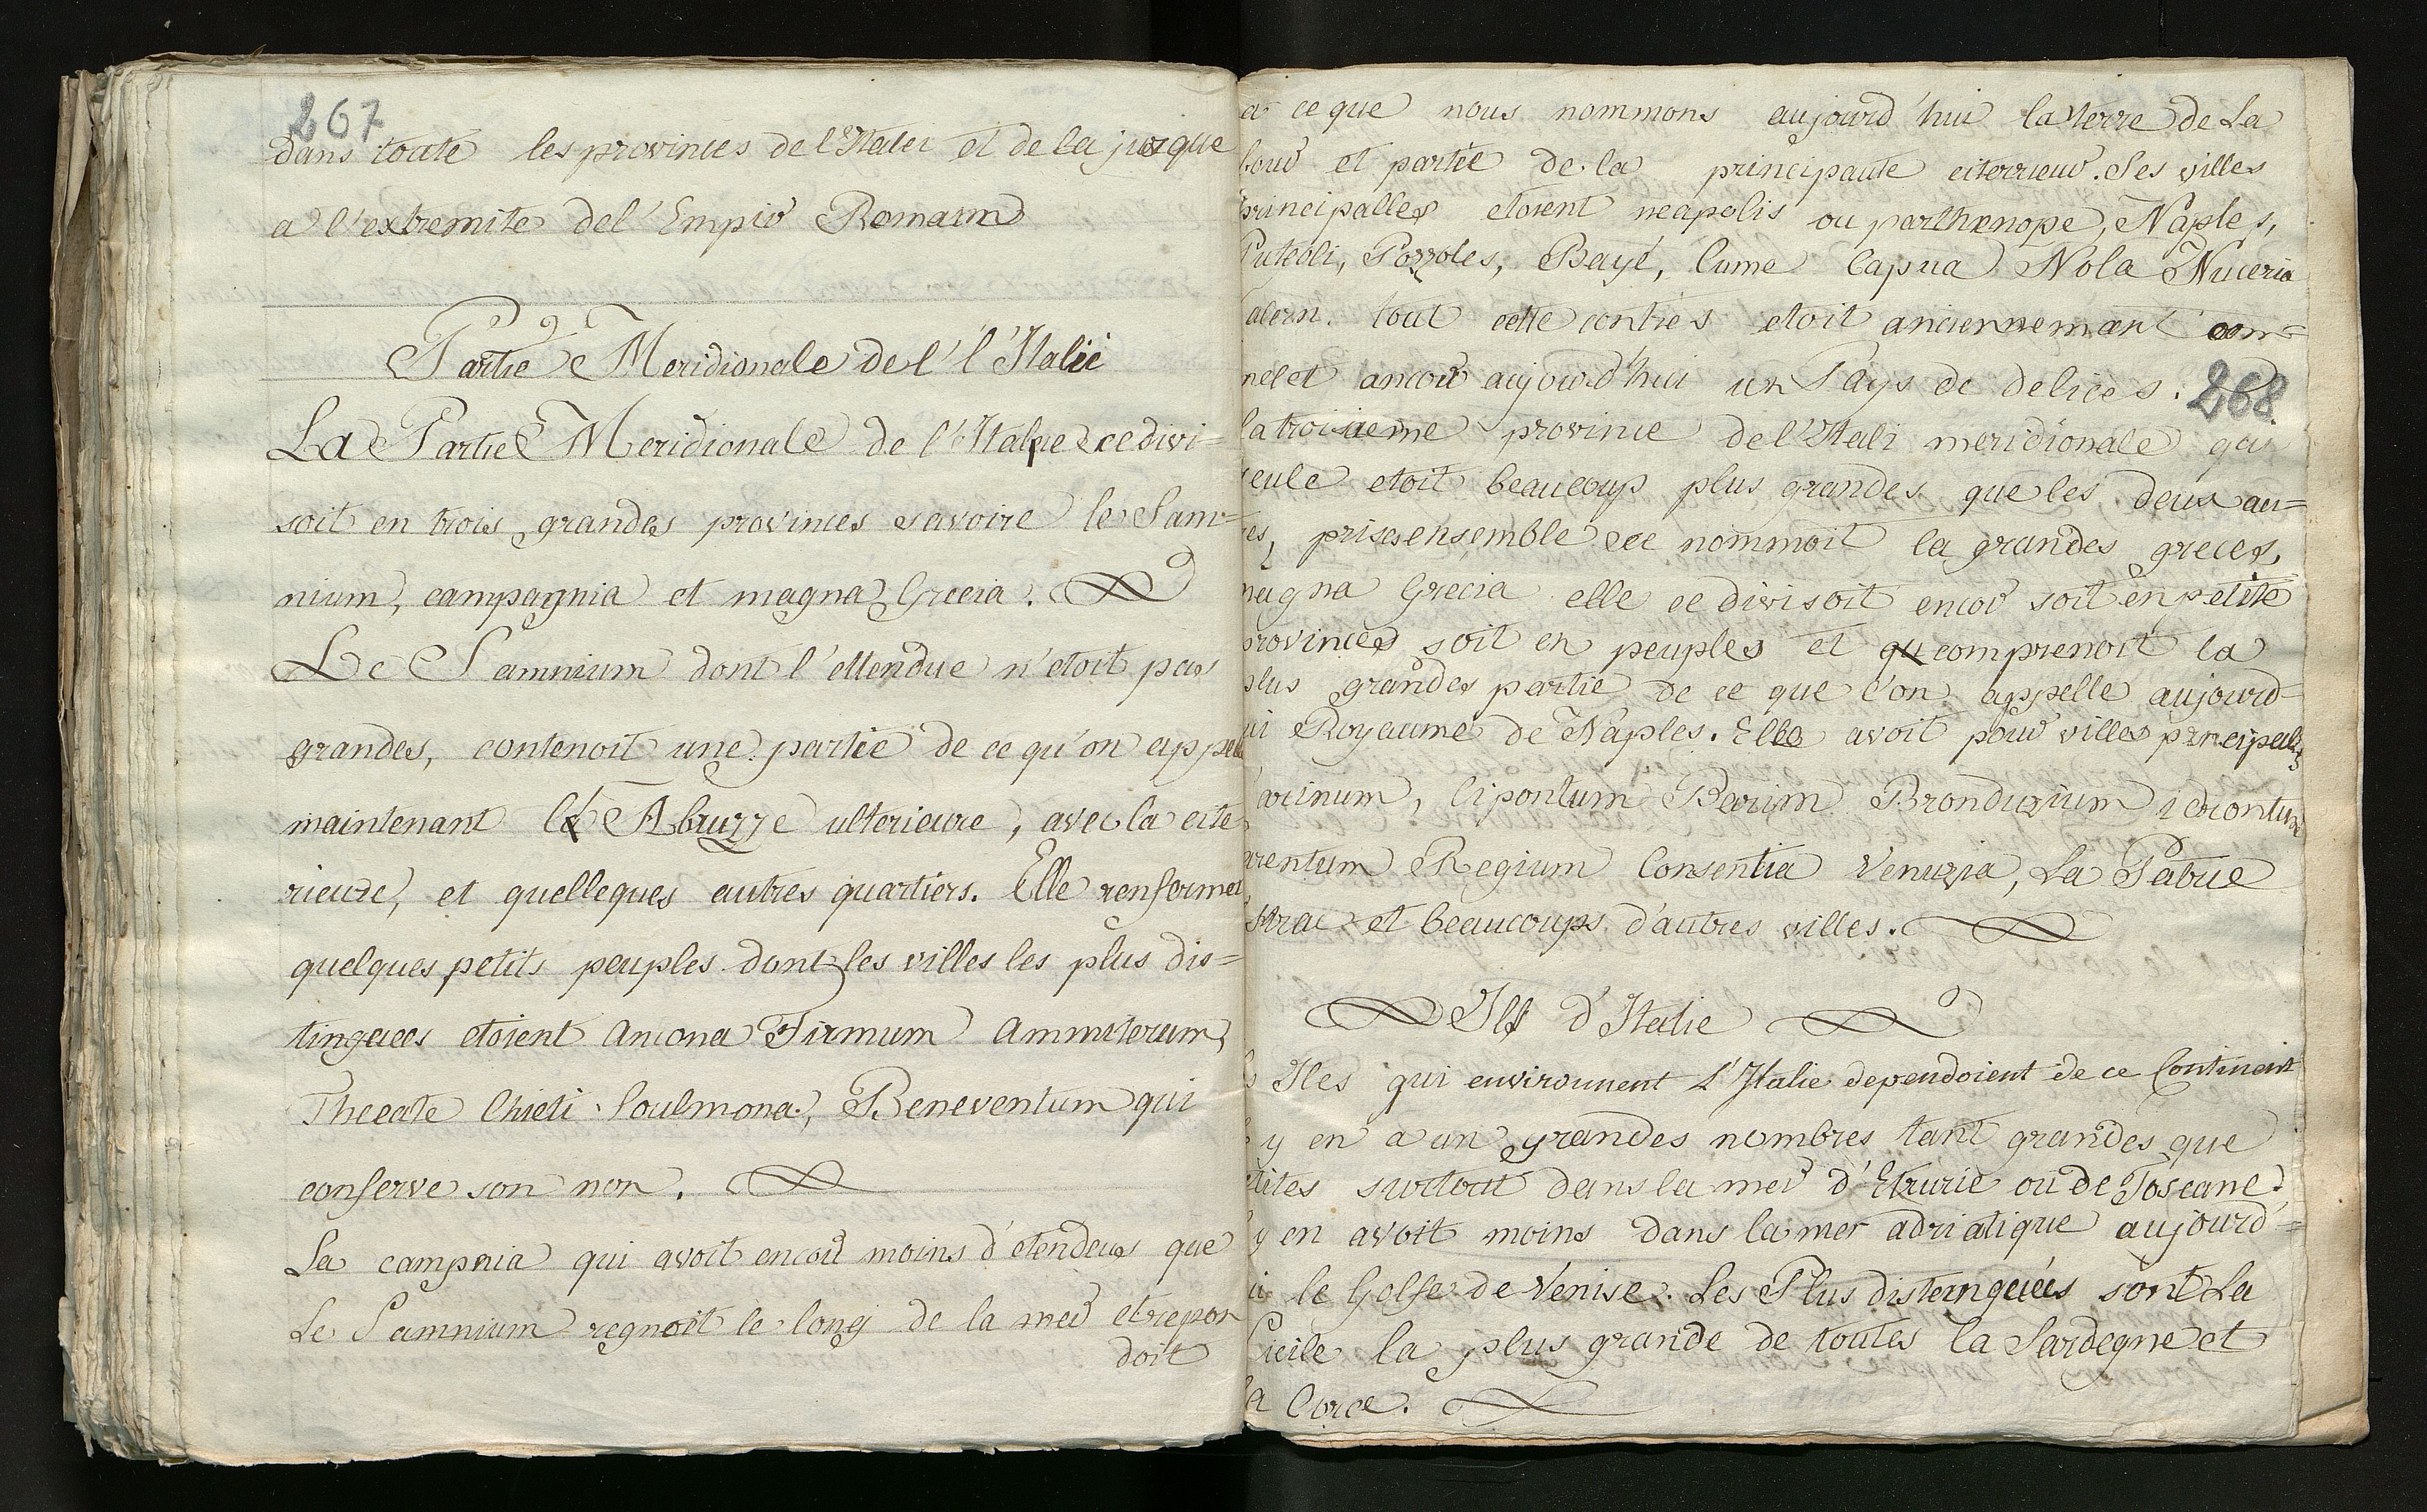 267
dans toute les provinces de l'Italei et de la jusque
a l'extremite de l'Empir Romain
Partie Meridionale de l'l'Italie
La Partie Meridionale de l'Italie ce divi=
soit en trois grandes provinces savoire le Sam=
nium, campagnia et magna Grecia.
Le Samnium dont l'ettendue n'etoit pas
grandes, contenoit une partie de ce qu'on appelle
maintenant l'Abruzze ulterieure, avec la cite
rieure, et quelleques autres quartiers. Elle renformet
quelques petits peuples dont les villes les plus dis=
tinguees etoient Ancona Firmum Ammiterum,
Theeate Chieti Soulmona, Beneventum qui
conserve son non.
La campnia qui avoit encor moins d'etendeus que
Le Samnium regnoit le long de la mer et repon
doit
a ce que nous nommons aujourd'hui la terre de La
bour et partie de la principaute citerrieur. Ses villes
principalles etoient neapolis ou parthenope, Naples,
Puteoli, Pozzoles, Bayé, Cume Capua Nola Nuceria
alern. tout cette contrés etoit anciennemant com=
nelet ancoir aujourd'hui un Pays de delices.
268
la troisieme province de l'Itali meridionale qui
seule etoit beaucoup plus grandes que les deux au=
res, prises ensemble ce nommoit la grandes greces,
magna Grecia elle ce divisoit encor soit en petite
provinces soit en peuples et comprenoit la
plus grandes partie de ce que l'on appelle aujourd=
ui Royaume de Naples. Elle avoit pour villes principales
arinum, Cipontum Barim Bronduzium idrontum
arentum Regium Consentia Venuzia, La Patrie
d'Horac et beaucoups d'autres villes.
Ils d'Italie
s Iles qui environnent L'Italie dependoient de ce Continent
y en a un grandes nombres tant grandes que
etites surtout dans la mer d'Etrurie ou de Toscane.
y en avoit moins dans la mer adriatique aujourd'=
ui le Golfe de Venise. Les Plus distemguées sont La
Sicile la plus grande de toutes la Sardegne et
la Corce.